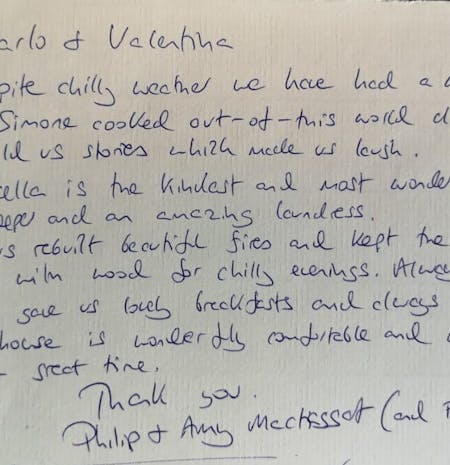 arlo & Valentina
pite chilly weather we have had a
Simone cooked out-of-this world d
ld us stories which made us laugh.
ella is the kindest and most wonde
eper and an amazing laundress.
s rebuilt beautiful fires and kept the
with wood for chilly evenings. Alway
gave us lovely breakfasts and always
house is wonderfully comfortable and
great time.
Thank you.
Philip & Amy (and